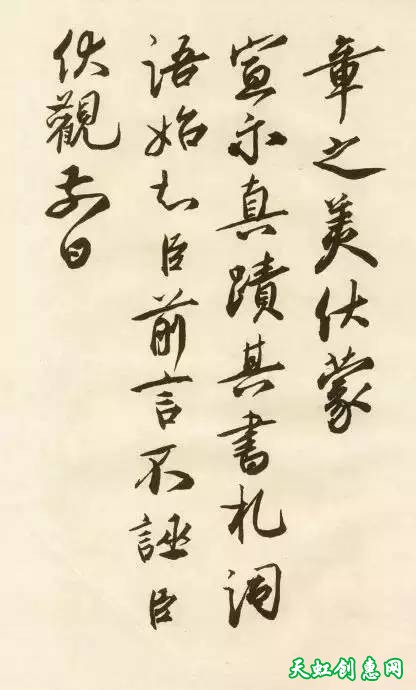 章之美伏蒙
宣示真蹟其書札詞
語始知臣前言不誣臣
伏觀前日
天虹创惠网